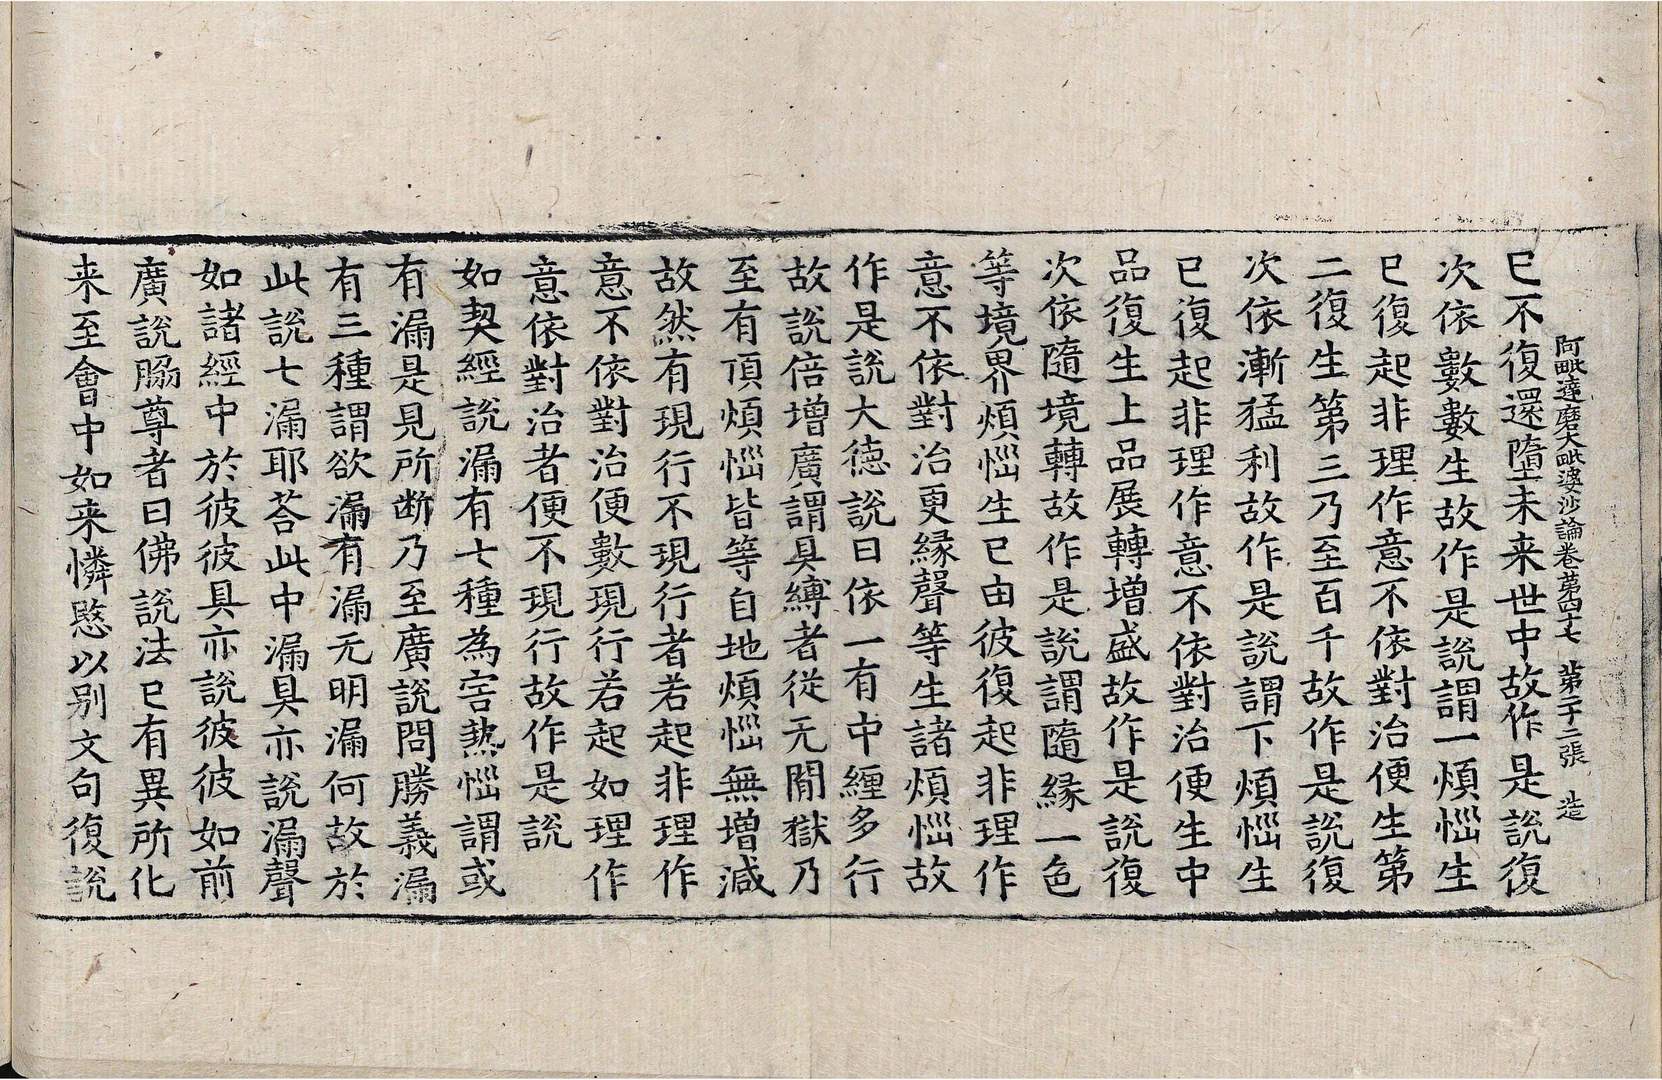 阿毗達磨大毗婆沙論卷第四十七　第二十二張　造
已不復還墮未来世中故作是說復
次依數數生故作是說謂一煩惱生
已復起非理作意不依對治便生第
二復生第三乃至百千故作是說復
次依漸猛利故作是說謂下煩惱生
已復起非理作意不依對治便生中
品復生上品展轉增盛故作是說復
次依隨境轉故作是說謂隨緣一色
等境界煩惱生已由彼復起非理作
意不依對治更緣聲等生諸煩惱故
作是說大德說曰依一有中纏多行
故說倍增廣謂具縛者從无閒獄乃
至有頂煩惱皆等自地煩惱無增減
故然有現行不現行者若起非理作
意不依對治便數現行若起如理作
意依對治者便不現行故作是說
如契經說漏有七種為害熱惱謂或
有漏是見所断乃至廣說問勝義漏
有三種謂欲漏有漏无明漏何故於
此說七漏耶荅此中漏具亦說漏聲
如諸經中於彼彼具亦說彼彼如前
廣說脇尊者曰佛說法已有異所化
来至會中如来憐愍以別文句復說